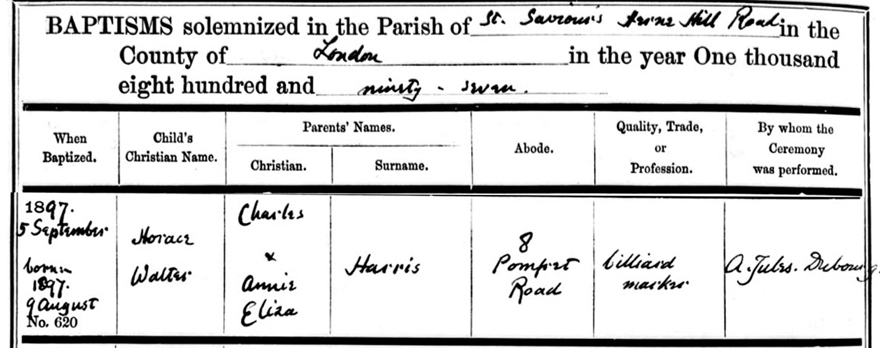 BAPTISMS solemnized in the Parish of St. Saviour's Herne Hill Road in the
County of London in the year One thousand
eight hundred and ninety - seven.
When Baptized.
Child's Christian Name.
Parents' Names.
Christian.
Surname.
Abode.
Quality, Trade, or Profession.
By whom the Ceremony was performed.
1897.
5 September
born
1897.
9 August
No. 620
Horace
Walter
Charles
&
Annie
Eliza
Harris
8
Pomfret
Road
billiard
marker
A. Jules. Dubourg